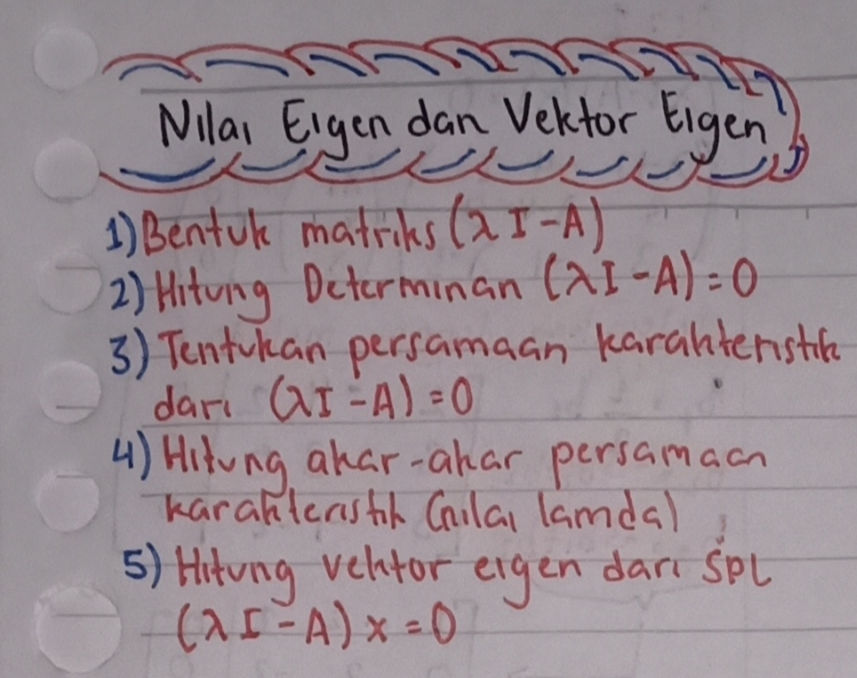 Nilai Eigen dan Vektor Eigen
1) Bentuk matriks (λI-A)
2) Hitung Determinan (λI-A)=0
3) Tentukan persamaan karakteristik
dari (λI-A)=0
4) Hitung akar-akar persamaan
karakteristik (nilai lamda)
5) Hitung vektor eigen dari SPL
(λI-A)x=0